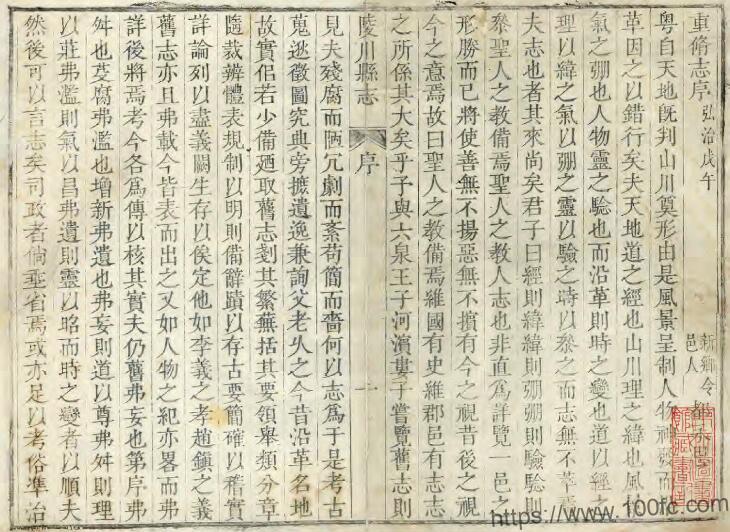 重脩志序 弘治戊午 新鄉令 邑人
粤自天地旣判山川奠形由是風景呈制人物
革因之以錯行矣夫天地道之經也山川理之緯也風
氣之弸也人物靈之騐也而沿革則時之變也道以經之
理以緯之氣以弸之靈以驗之時以叅之而志無不
夫志也者其來尚矣君子曰經則緯緯則弸弸則驗驗則
叅聖人之教備焉聖人之教人志也非直爲詳覽一邑之
形勝而已將使善無不揚惡無不擯有今之視昔後之視
今之意焉故曰聖人之教備焉維國有史維郡邑有志志
之所係其大矣乎予與六泉王子河濱婁子嘗覽舊志則
陵川縣志 序 一
見夫殘腐而陋冗劇而紊苟簡而嗇何以志爲于是考古
蒐逖徵圖究典旁摭遺逸兼詢父老乆之今昔沿革名地
故實侣若少備廼取舊志剗其繁蕪括其要領舉類分章
隨裁辨體表規制以明則備辭蹟以存古要簡確以稽實
詳論列以盡義闕生存以俟定他如李義之孝趙鎮之義
舊志亦且弗載今皆表而出之又如人物之紀亦畧而弗
詳後將焉考今各爲傳以核其實夫仍舊弗妄也第序弗
舛也芟腐弗濫也增新弗遺也弗妄則道以尊弗舛則理
以莊弗濫則氣以昌弗遺則靈以昭而時之變者以順夫
然後可以言志矣司政者倘垂省焉或亦足以考俗凖治
https://www.100fc.com